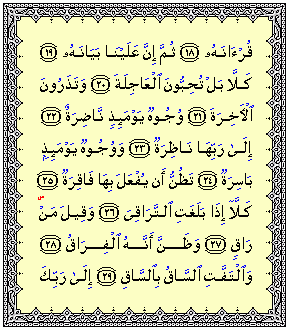 قُرْءَانَهُۥ ۝١٨ ثُمَّ إِنَّ عَلَيْنَا بَيَانَهُۥ ۝١٩
كَلَّا بَلْ تُحِبُّونَ ٱلْعَاجِلَةَ ۝٢٠ وَتَذَرُونَ
ٱلْـَٔاخِرَةَ ۝٢١ وُجُوهٌ يَوْمَئِذٍ نَّاضِرَةٌ ۝٢٢
إِلَىٰ رَبِّهَا نَاظِرَةٌ ۝٢٣ وَوُجُوهٌ يَوْمَئِذٍۭ
بَاسِرَةٌ ۝٢٤ تَظُنُّ أَن يُفْعَلَ بِهَا فَاقِرَةٌ ۝٢٥
كَلَّآ إِذَا بَلَغَتِ ٱلتَّرَاقِىَ ۝٢٦ وَقِيلَ مَنْ ۜ
رَاقٍ ۝٢٧ وَظَنَّ أَنَّهُ ٱلْفِرَاقُ ۝٢٨
وَٱلْتَفَّتِ ٱلسَّاقُ بِٱلسَّاقِ ۝٢٩ إِلَىٰ رَبِّكَ